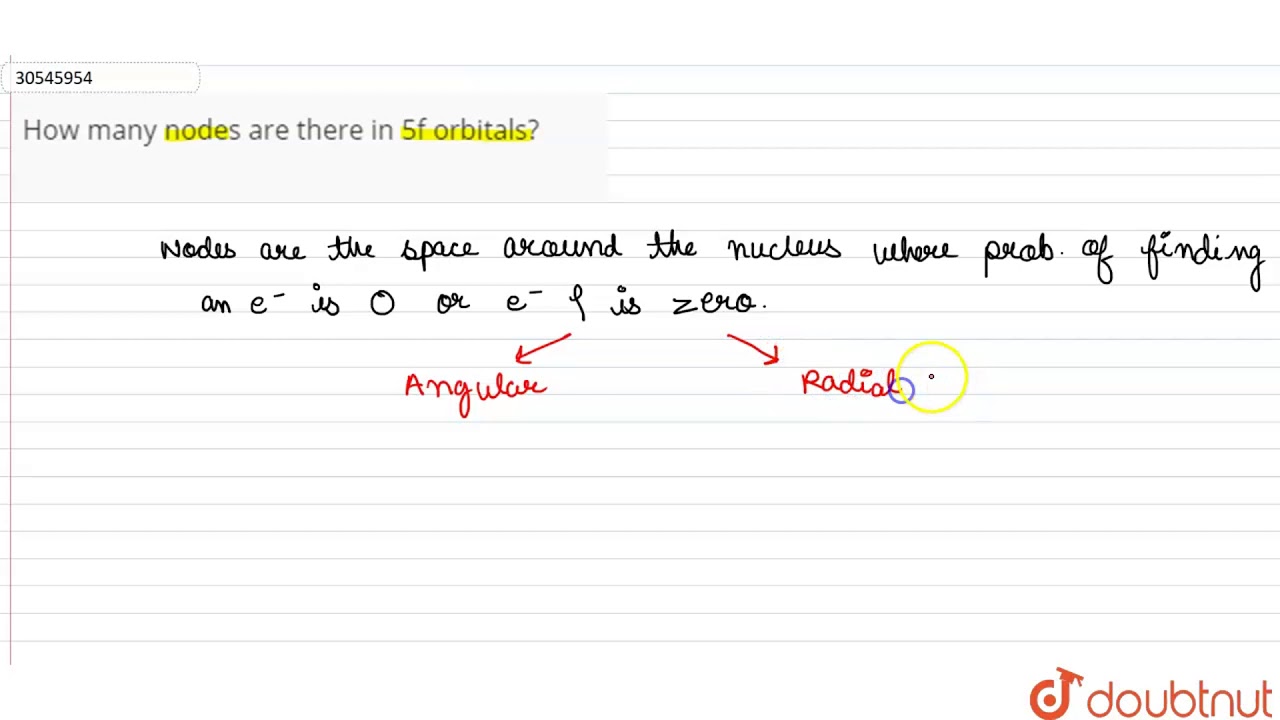 30545954
How many nodes are there in 5f orbitals?
Nodes are the space around the nucleus where prob. of finding
an e⁻ is 0 or e⁻ ρ is zero.
Angular Radial
doubtnut